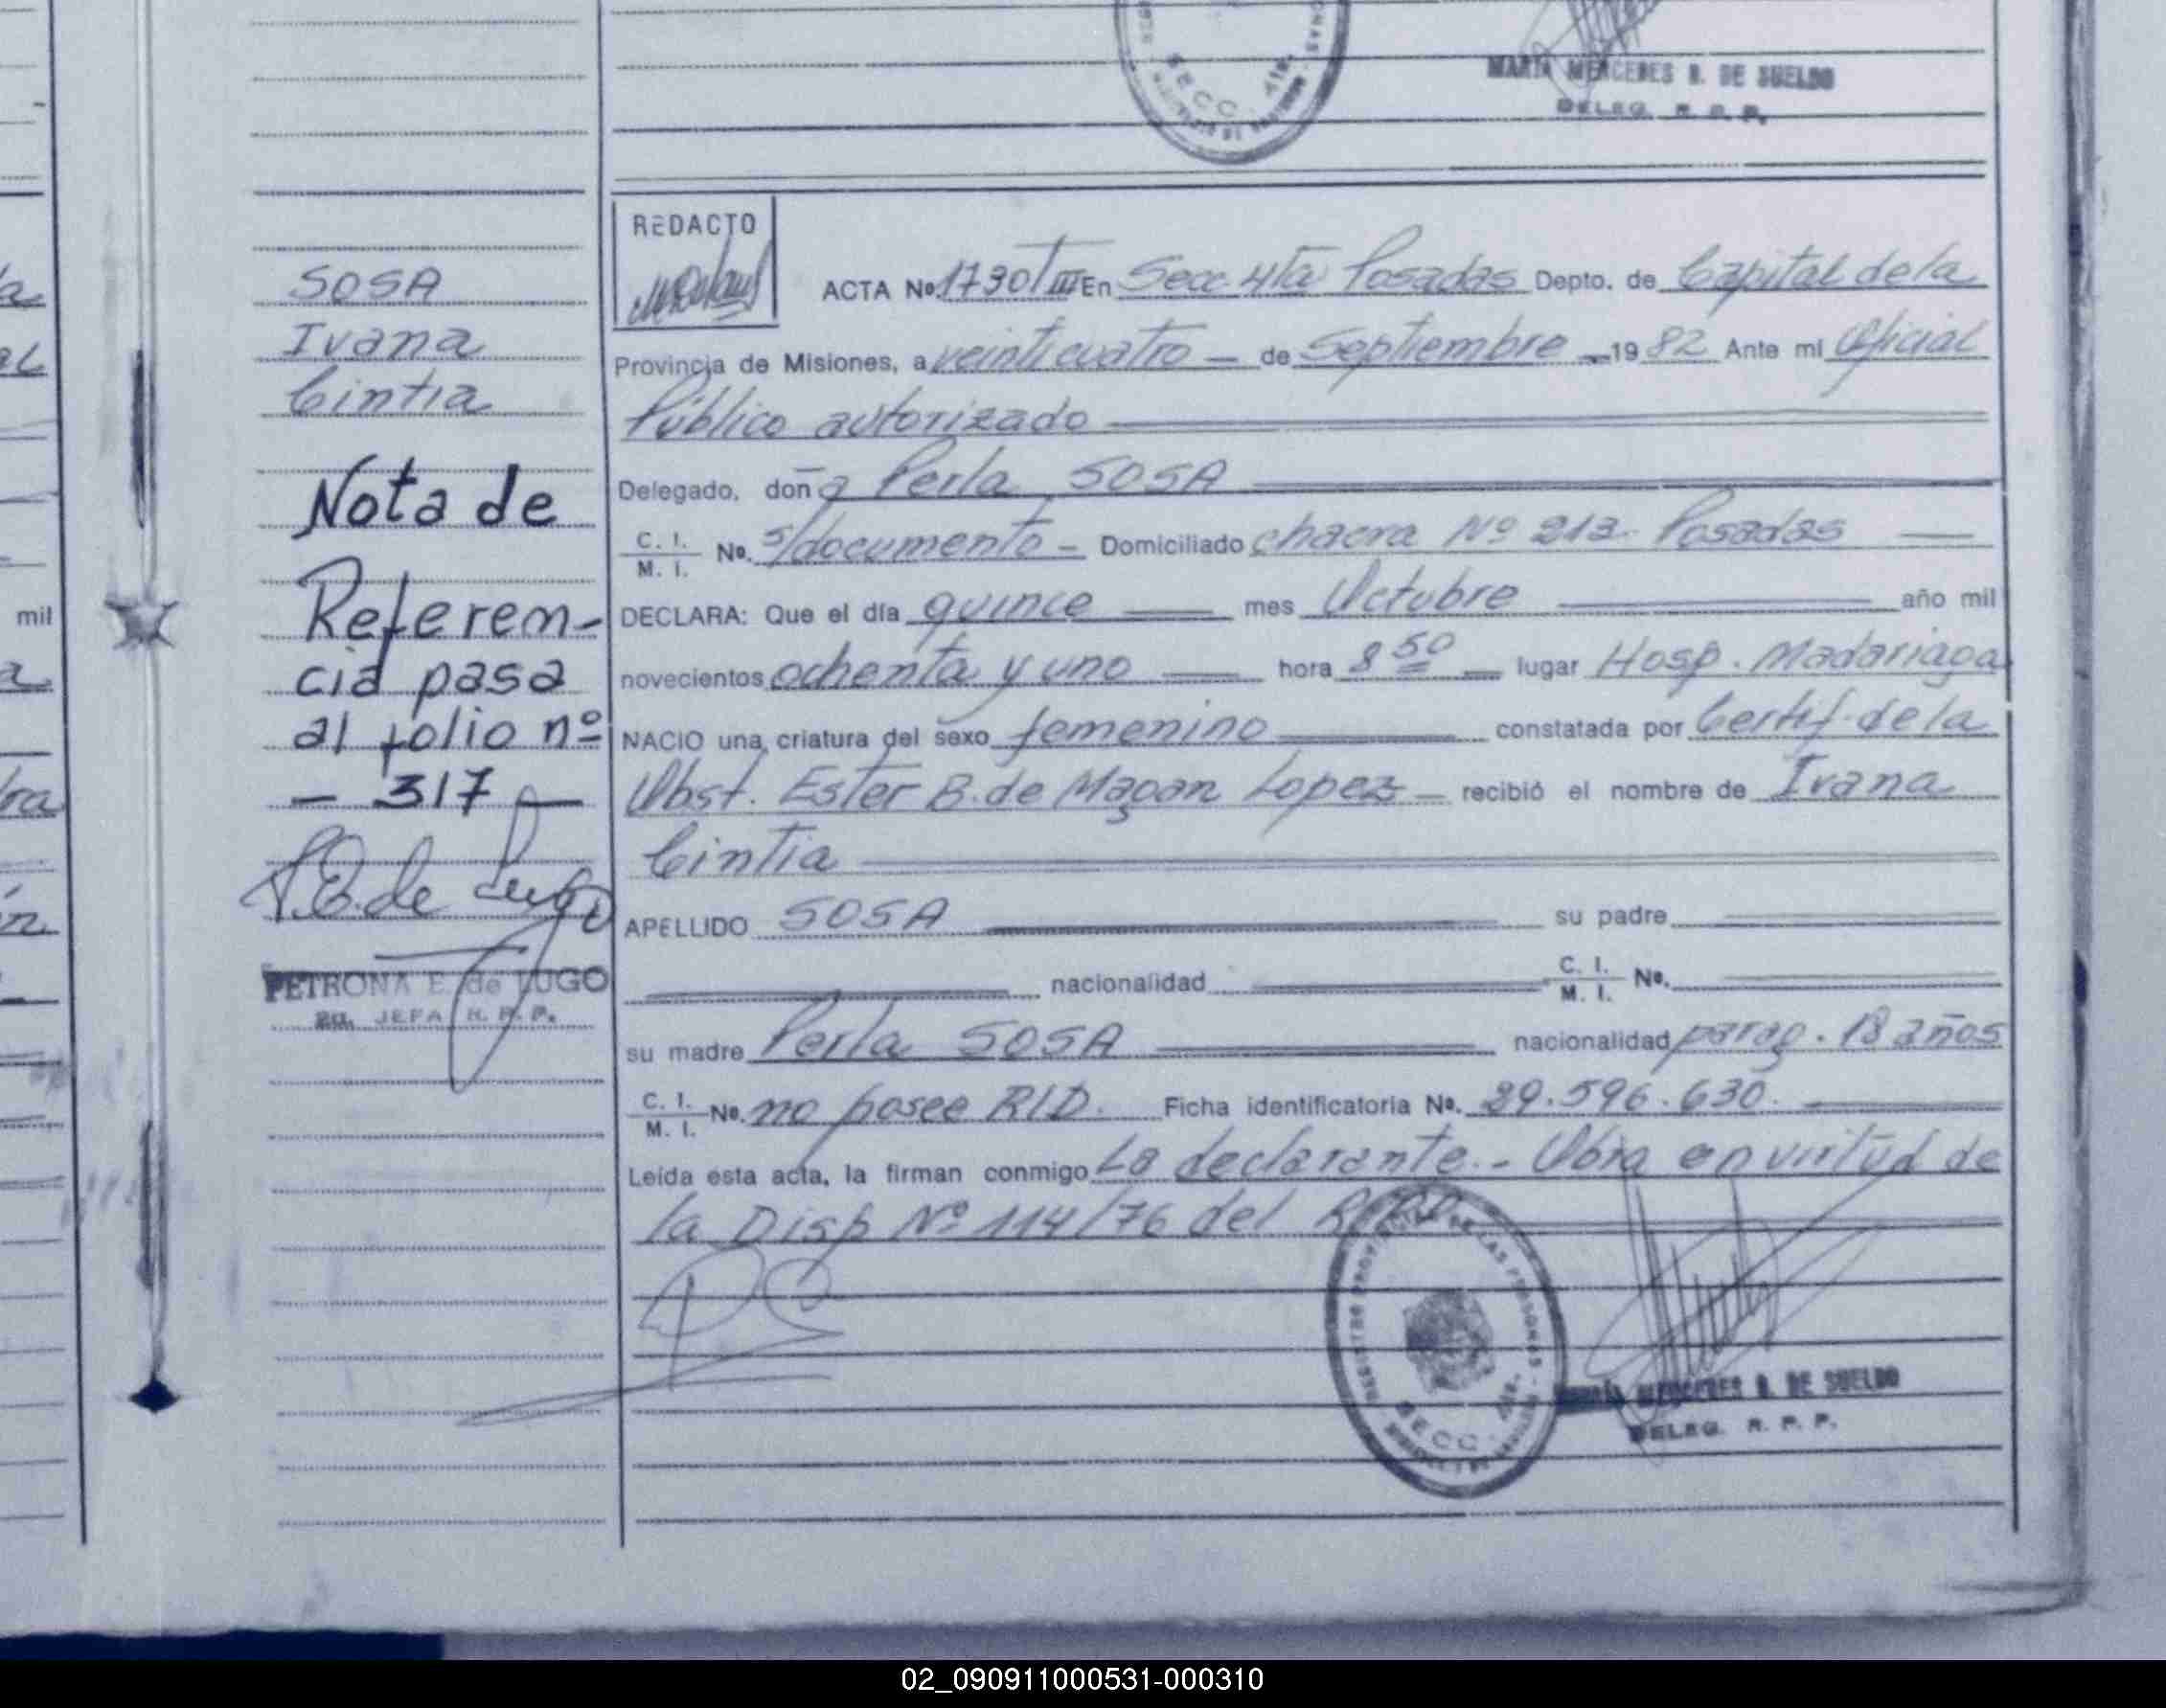 MARIA MERCEDES B. DE SUELDO
DELEG. R. P. P.
SECC. 4ta.
REDACTO
SOSA
Ivana
Cintia
Nota de
Referen-
cia pasa
al folio nº
- 317 -
P.E. de Lugo
PETRONA E. de LUGO
JEFA R. P. P.
ACTA Nº 1730 T III En Secc 4ta Posadas Depto. de Capital de la
Provincia de Misiones, a veinticuatro - de Septiembre - 1982 Ante mi Oficial
Público autorizado
Delegado, doña Perla SOSA
C. I. M. I. No. s/documento - Domiciliado chacra Nº 213 - Posadas
DECLARA: Que el día quince mes Octubre año mil
novecientos ochenta y uno hora 8 50 lugar Hosp. Madariaga
NACIO una criatura del sexo femenino constatada por Certif. de la
Obst. Ester B. de Magan Lopez - recibió el nombre de Ivana
Cintia
APELLIDO SOSA su padre
nacionalidad C. I. M. I. No.
su madre Perla SOSA nacionalidad parag. 18 años
C. I. M. I. No. no posee R/D. Ficha identificatoria No. 29.596.630.
Leída esta acta, la firman conmigo La declarante.- Obra en virtud de
la Disp Nº 114/76 del
REGISTRO PROVINCIAL DE LAS PERSONAS
SECC. 4ta.
MARIA MERCEDES B. DE SUELDO
DELEG. R. P. P.
mil
02_090911000531-000310